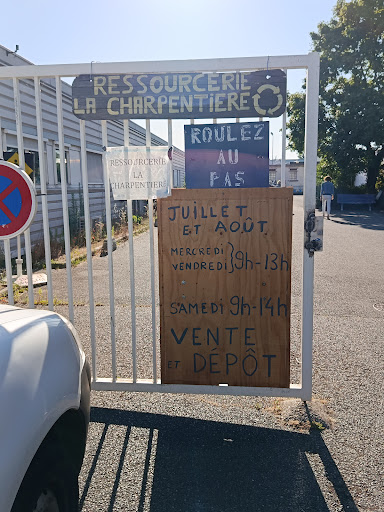 RESSOURCERIE
LA CHARPENTIÈRE
RESSOURCERIE
LA
CHARPENTIÈRE
ROULEZ
AU
PAS
JUILLET
ET AOÛT
MERCREDI
VENDREDI } 9h-13h
SAMEDI 9h-14h
VENTE
ET DÉPÔT